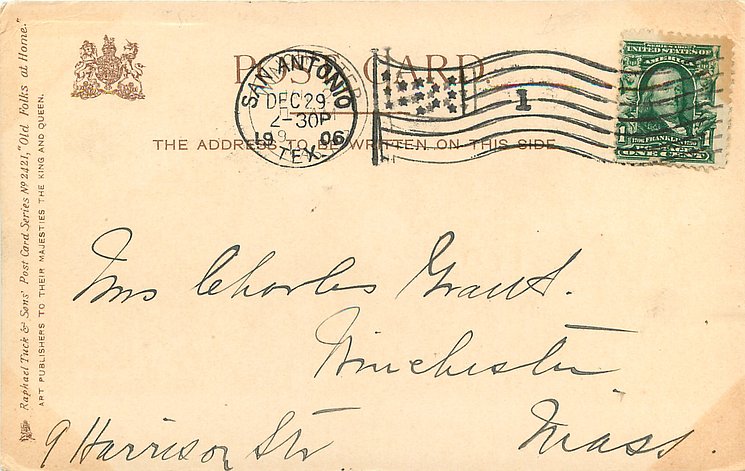 POST CARD
THE ADDRESS TO BE WRITTEN ON THIS SIDE
SAN ANTONIO
DEC 29
2-30P
19 06
TEX.
1
SERIES 1902
UNITED STATES OF AMERICA
FRANKLIN
ONE CENT
Raphael Tuck & Sons' Post Card Series No 2421, "Old Folks at Home."
ART PUBLISHERS TO THEIR MAJESTIES THE KING AND QUEEN.
Mrs Charles Grant.
Winchester
9 Harrison Str
Mass.